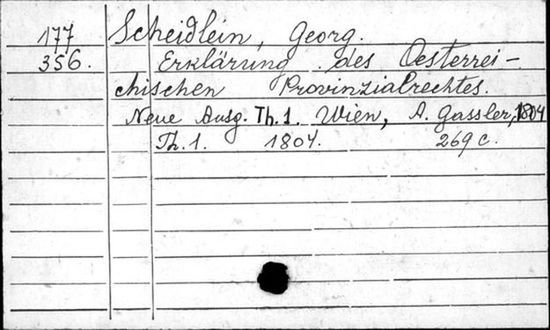 177 Scheidlein, Georg.
356. Erklärung des Oesterrei-
chischen Provinzialrechtes.
Neue Ausg. Th. 1. Wien, A. Gassler, 1804
Th. 1. 1804. 269 c.